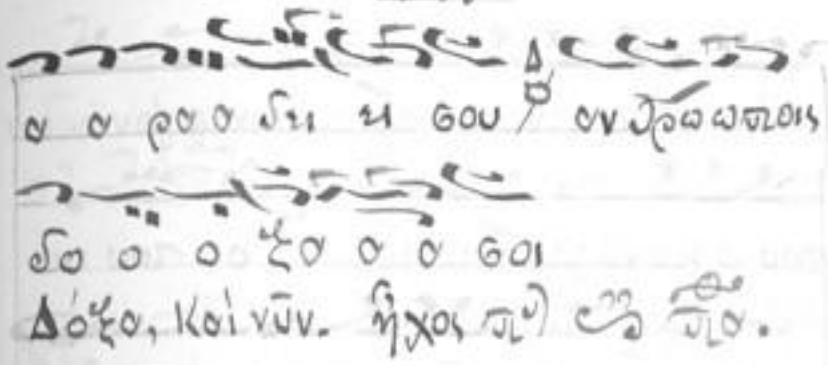 α α ρα α δει ει σου Δ αν θρω ω ποις
δο ο ο ξα α α σοι
Δόξα, Καὶ νῦν. ἦχος πλ πα.